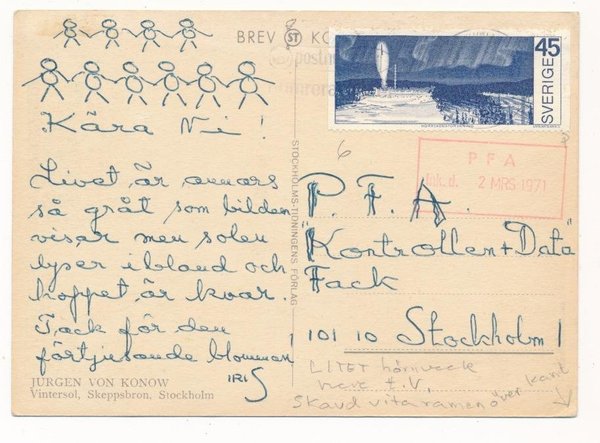 BREV
ST
KO
postn
SVERIGE 45
Kära Ni!
Livet är annars
så gråt som bilden
visar men solen
lyser ibland och
hoppet är kvar.
Tack för den
förtjusande blomman!
IRIS
JURGEN VON KONOW
Vintersol, Skeppsbron, Stockholm
STOCKHOLMS-TIDNINGENS FÖRLAG
6
PFA
Ink.d. 2 MRS 1971
P. F. A.
"Kontrollen+Data"
Fack
101 10 Stockholm 1
LITET hörnveck
t.V.
Skavd vita ramen över kant